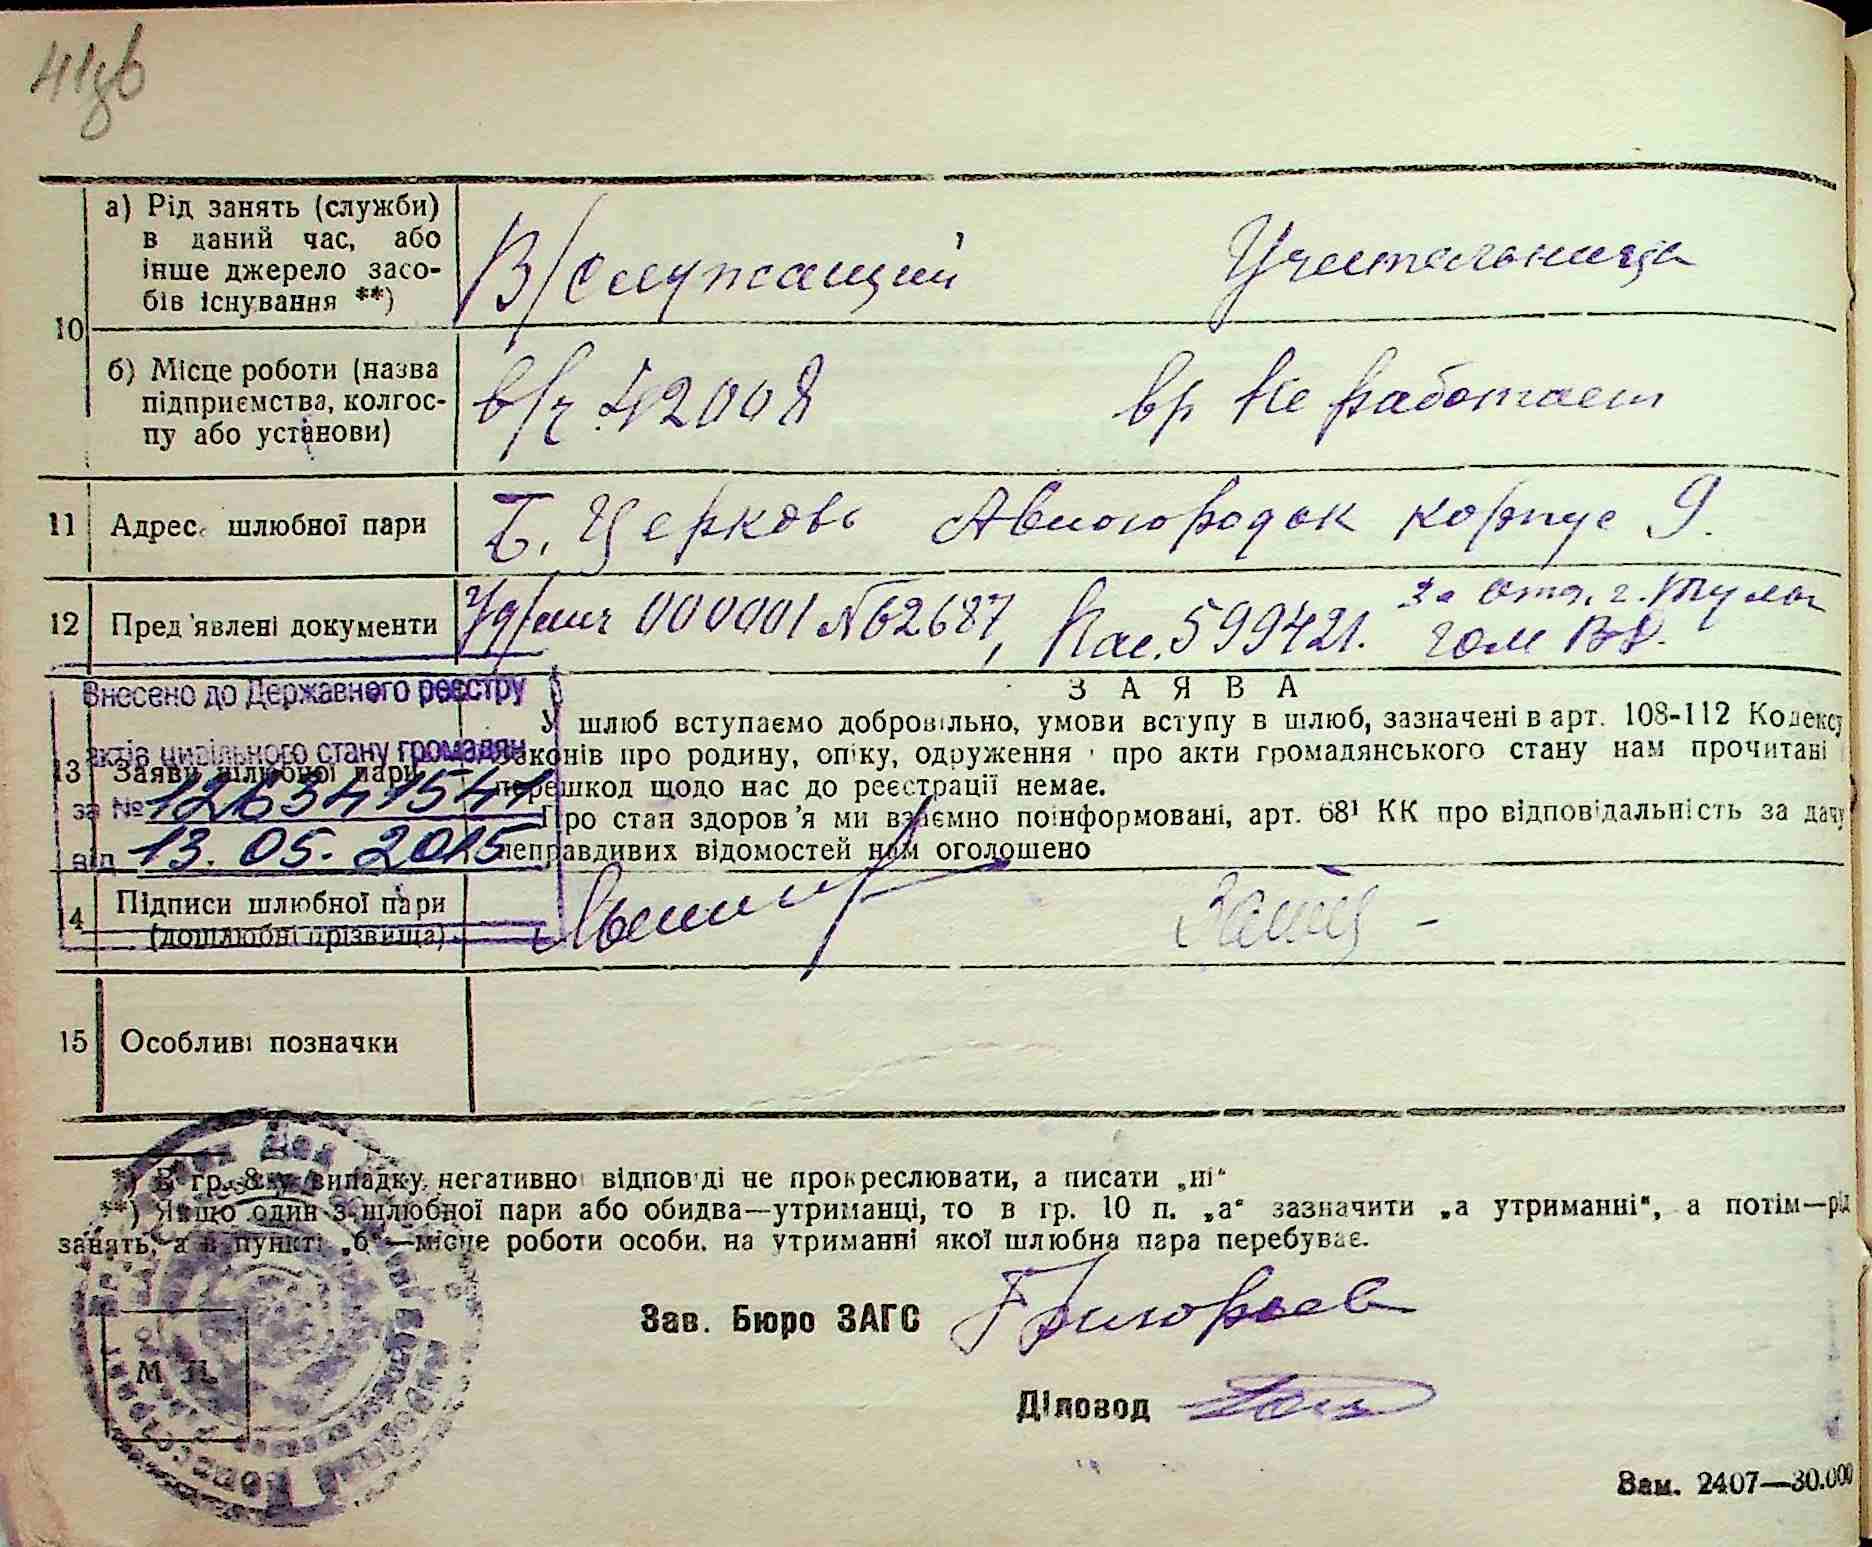 41зв
а) Рід занять (служби)
в даний час, або
інше джерело засо-
бів існування **)
В/служащий
Учительница
10
б) Місце роботи (назва
підприємства, колгос-
пу або установи)
в/ч 42008
вр Не работает
11 Адрес шлюбної пари
Б. Церковь Авиогородок корпус 9.
12 Пред'явлені документи
Уд/лич 000001 №62687, Пас. 599421.
3е отд. г. Тулы
ГОМ ВД.
Внесено до Державного реєстру
актів цивільного стану громадян
за № 1263471541
від 13.05.2015
13 Заяви шлюбної пари
ЗАЯВА
У шлюб вступаємо добровільно, умови вступу в шлюб, зазначені в арт. 108-112 Кодексу
законів про родину, опіку, одруження і про акти громадянського стану нам прочитані
перешкод щодо нас до реєстрації немає.
Про стан здоров'я ми взаємно поінформовані, арт. 68¹ КК про відповідальність за дачу
неправдивих відомостей нам оголошено
14 Підписи шлюбної пари
(дошлюбні прізвища)
15 Особливі позначки
*) В гр. 8 у випадку негативної відповіді не прокреслювати, а писати „ні"
**) Якщо один з шлюбної пари або обидва—утриманці, то в гр. 10 п. „а" зазначити „а утриманні", а потім—рід
занять, а в пункті „б"—місце роботи особи, на утриманні якої шлюбна пара перебуває.
Зав. Бюро ЗАГС Григорьев
Діловод
М П.
Зам. 2407—30.000